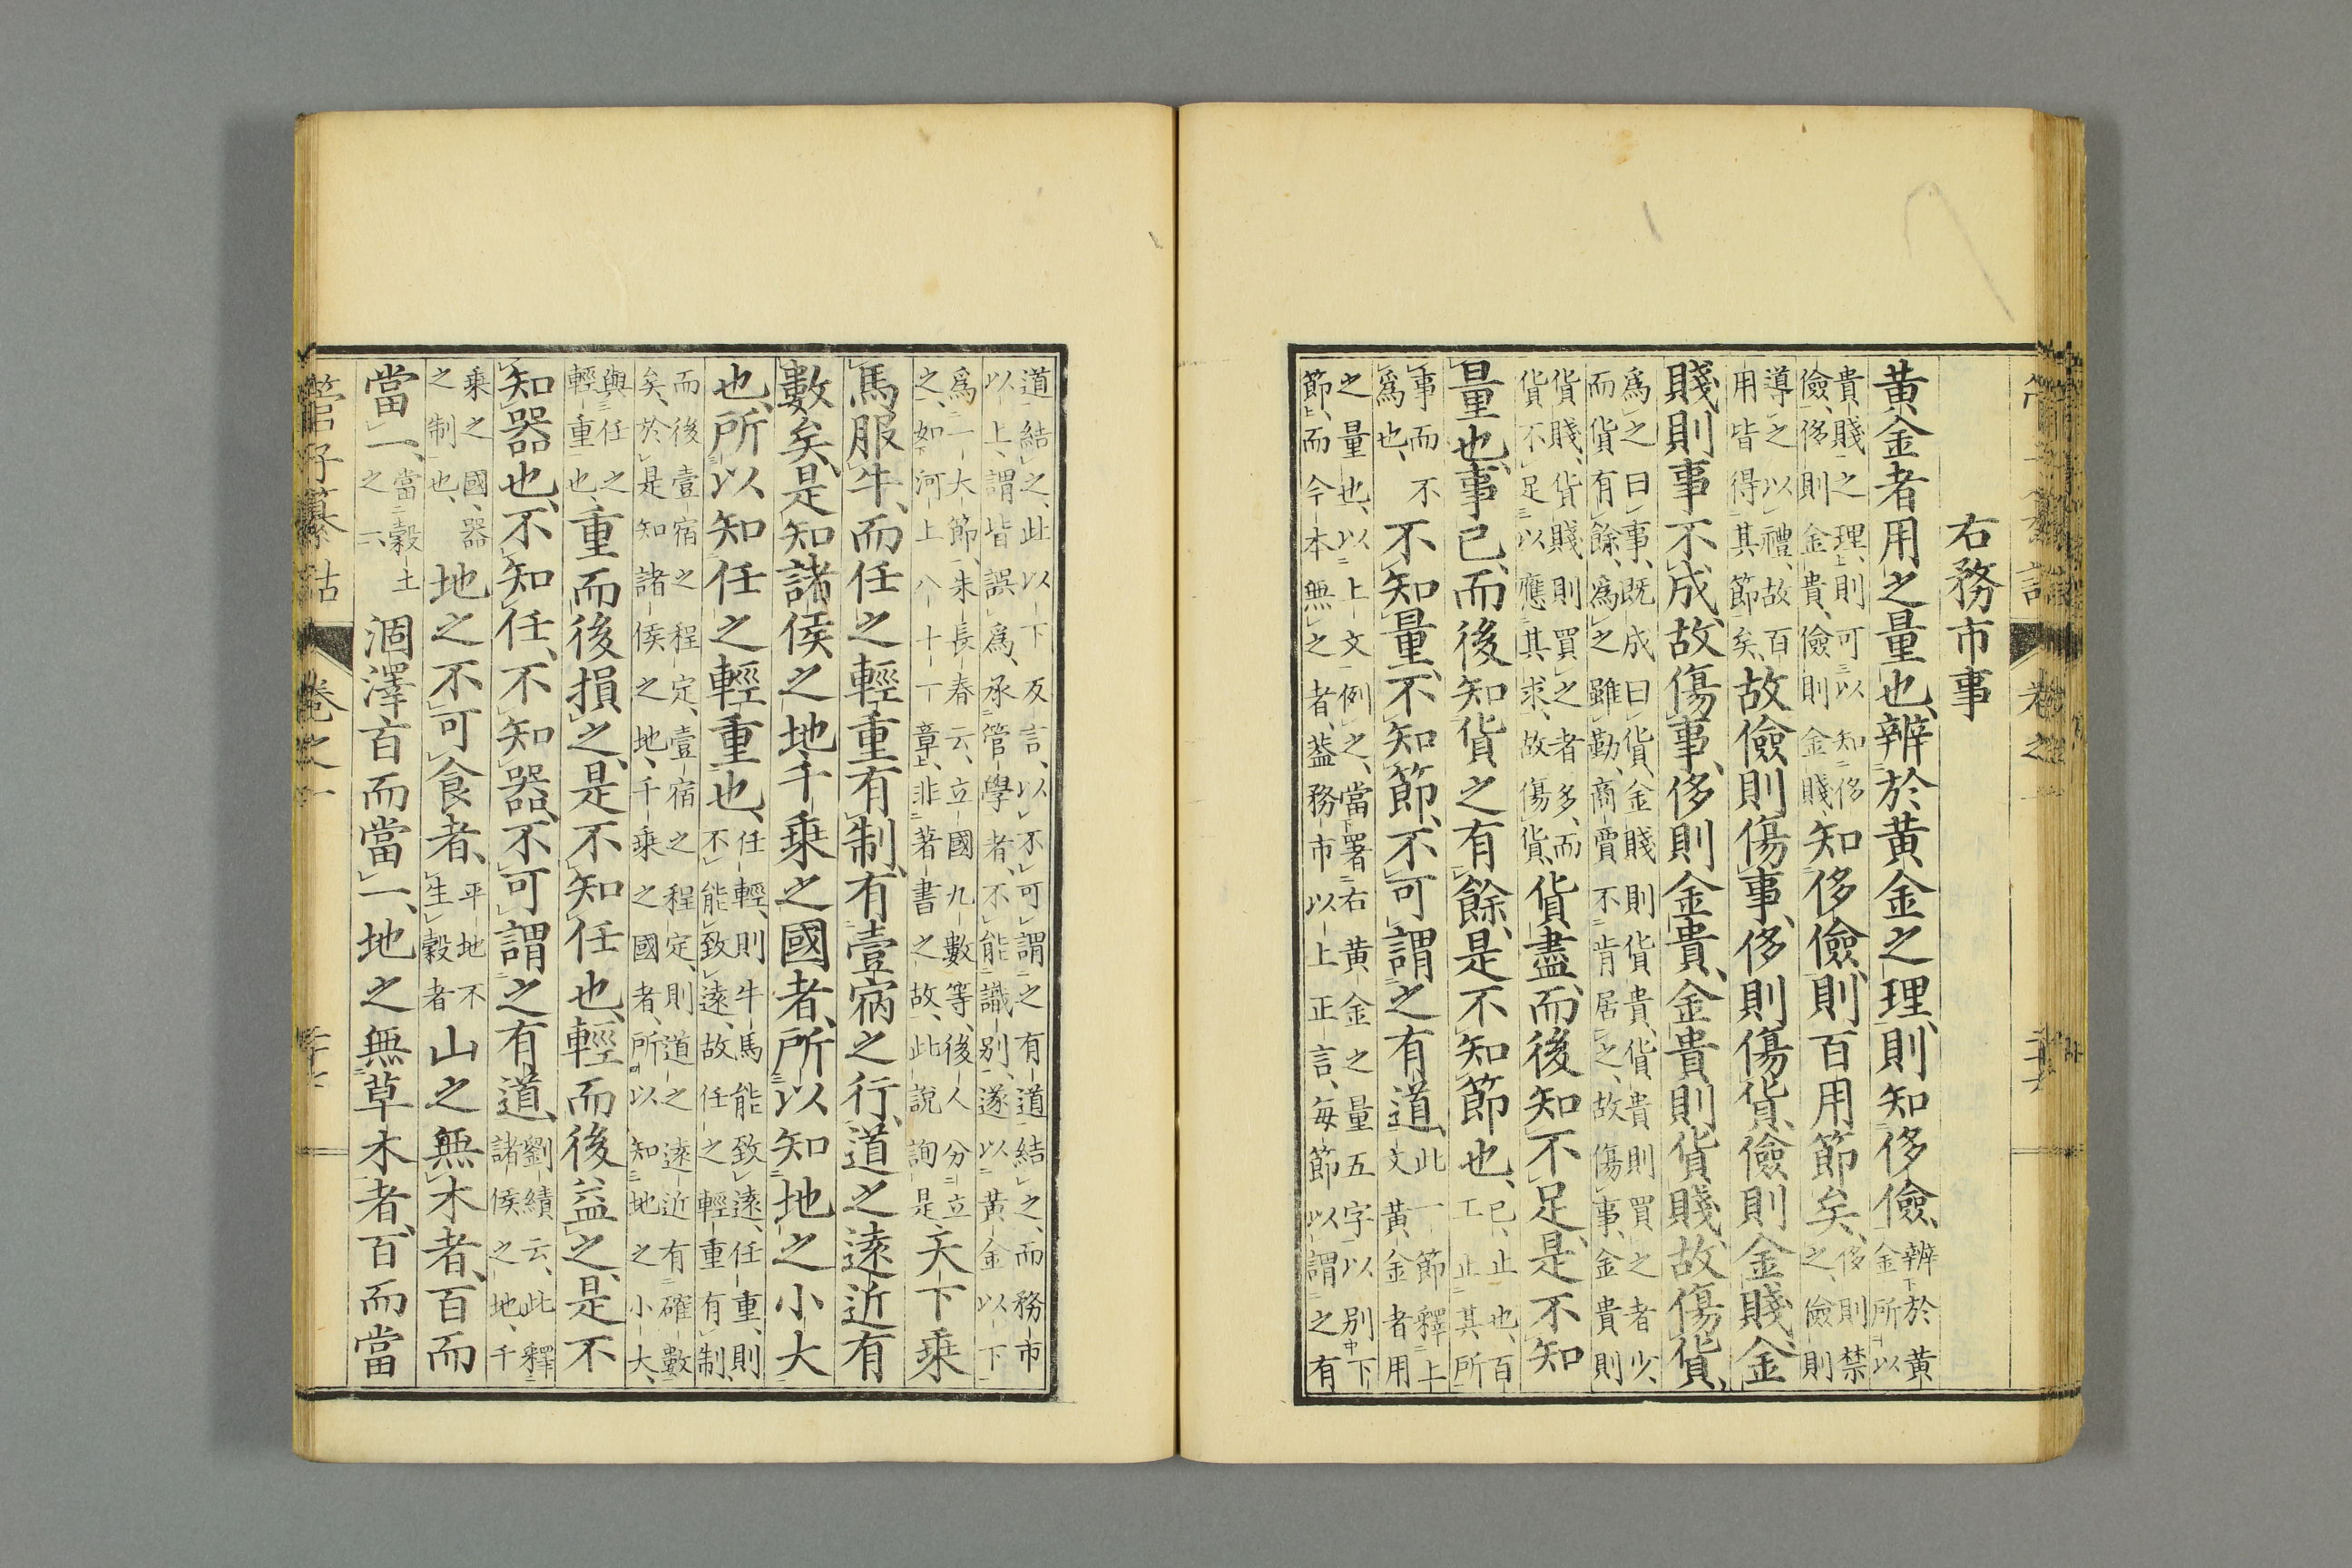 右務市事
黄金者用之量也、辨於黄金之理、則知侈儉、辨於黄
金所以
貴賤之理、則可以知侈
儉、侈則金貴、儉則金賤、知侈儉、則百用節矣、侈則禁
之、儉則
導之以禮、故百
用皆得其節矣、故儉則傷事、侈則傷貨、儉則金賤、金
賤則事不成、故傷事、侈則金貴、金貴則貨賤、故傷貨、
爲之曰事、既成曰貨、金賤則貨貴、貨貴則買之者少、
而貨有餘、爲之雖勤、商賣不肯居之、故傷事、金貴則
貨賤、貨賤、則買之者多、而
貨不足以應其求、故傷貨、貨盡而後知不足、是不知
量也、事已、而後知貨之有餘、是不知節也、已、止也、百
工止其所
事而不
爲也、不知量、不知節、不可謂之有道、此一節釋上
文黄金者用
之量也、以上文例之、當署右黄金之量五字以别下
節、而今本無之者、葢務市以上正言、毎節以謂之有
道結之、此以下反言、以不可謂之有道結之、而務市
以上、謂皆誤爲、承管學者、不能識别、遂以黄金以下
爲一大節、朱長春云、立國九數等、後人分立
之、如河上八十一章、非著書之故、此説詢是天下乗
馬服牛、而任之輕重有制、有壹宿之行、道之遠近有
數矣、是知諸侯之地、千乗之國者、所以知地之小大
也、所以知任之輕重也、任輕、則牛馬能致遠、任重、則
不能致遠、故任之輕重有制、
而後壹宿之程定、壹宿之程定、則道之遠近有確數
矣、於是知諸侯之地、千乗之國者、所以知地之小大、
與任之
輕重也、重而後損之、是不知任也、輕而後益之、是不
知器也、不知任、不知器、不可謂之有道、劉績云、此釋
諸侯之地、千
乗之國、器
之制也、地之不可食者、平地不
生穀者山之無木者、百而
當一、當穀土
之一、涸澤百而當一、地之無草木者、百而當
管子纂詁 卷之一 二十七